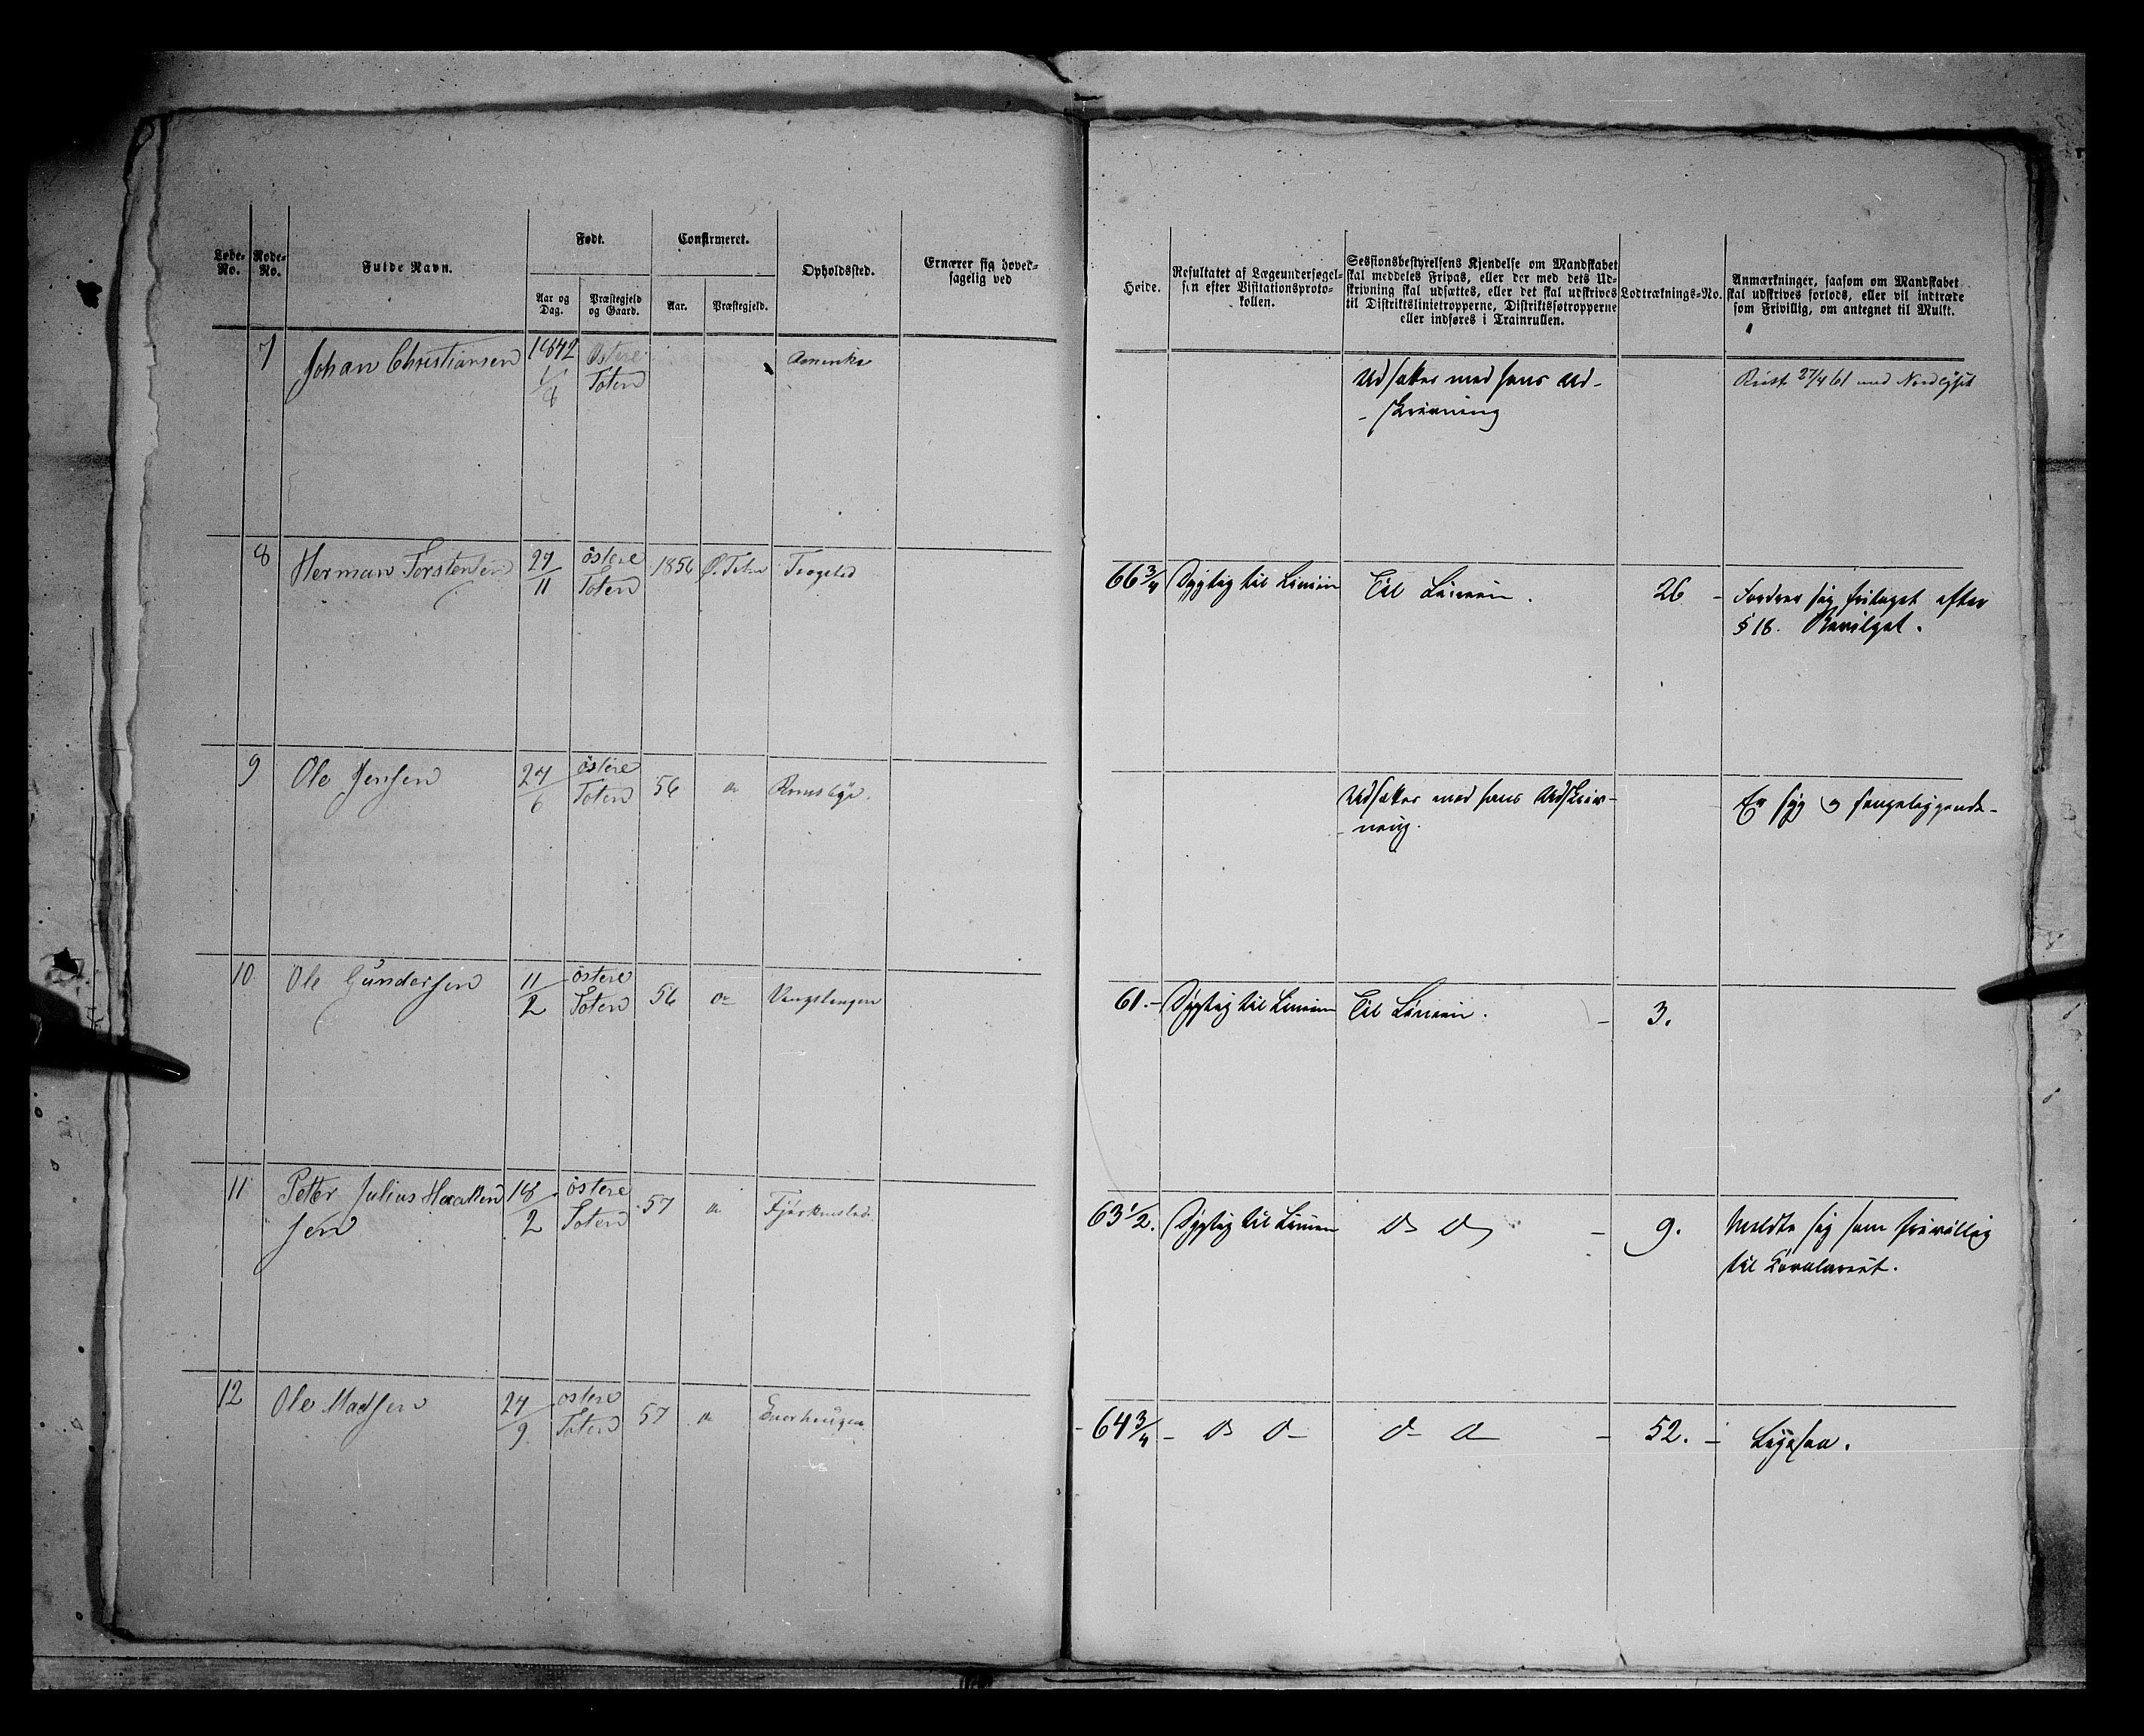 Løbe-No.
Rode-No.
Fulde Navn.
Født.
Aar og Dag.
Præstegjeld og Gaard.
Confirmeret.
Aar.
Præstegjeld.
Opholdssted.
Ernærer sig hovedsagelig ved
Høide.
Resultatet af Lægeundersøgel-
sen efter Visitationsproto-
kollen.
Sessionsbestyrelsens Kjendelse om Mandskabet
skal meddeles Fripas, eller der med dets Ud-
skrivning skal udsættes, eller det skal udskrives
til Distriktslinietropperne, Distriktssøtropperne
eller indføres i Trainrullen.
Lodtræknings-No.
Anmærkninger, saasom om Mandskabet
skal udskrives forlods, eller vil indtræde
som Frivillig, om antegnet til Mulkt.
7 Johan Christiansen 1842 Østere Amerika
Toten
Udsættes med hans Ud-
skrivning
Reist 27/4 61 med Nordlyset
8 Herman Torstensen 27/11 östere Toten 1856 Ø. Toten
66 3/4 Dygtig til Linien Til Linien. 26 - Fordrer sig fritaget efter
§ 18. Bevilget.
9 Ole Jensen 24/6 östere Toten 56 do
Udsættes med hans Udskriv-
ning.
Er syg og sengeliggende
10 Ole Gundersen 11/2 östere Toten 56 do
61.- Dygtig til Linien Til Linien. - 3.
11 Petter Julius Haaken
sen
18/2 östere Toten 57 do
63 1/2. Dygtig til Linien do do - 9. Meldte sig som frivillig
til Cavaleriet.
12 Ole Madsen 24/9 östere Toten 57 do
64 3/4 - do do do do - 52. - Ligesaa.